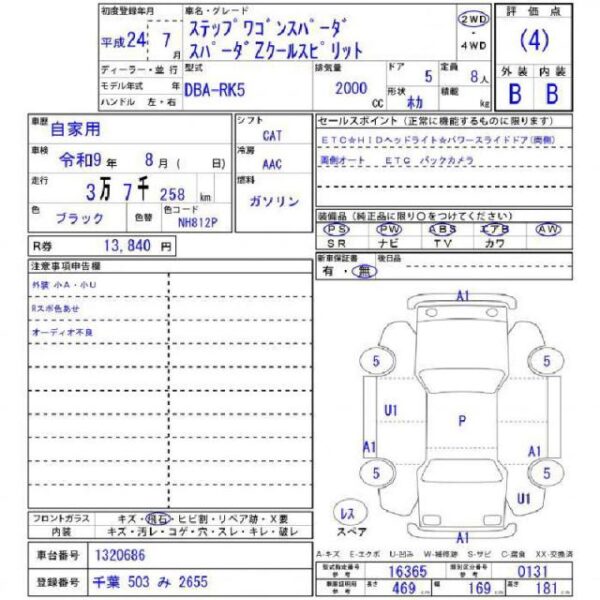 初度登録年月 車名・グレード 評価点
平成24年 7月 ステップワゴンスパーダ 2WD (4)
スパーダZクールスピリット ・4WD
ディーラー・並行 型式 排気量 ドア 5 定員 8人 外装 内装
モデル年式 年 DBA-RK5 2000 CC 形状 ホカ 積載 kg B B
ハンドル 左・右
車歴 自家用 シフト CAT セールスポイント(正常に機能するものに限ります)
車検 令和9年 8月(日) 冷房 AAC ETC☆HIDヘッドライト☆パワースライドドア(両側)
両側オート ETC バックカメラ
走行 3万7千258km 燃料 ガソリン
色 ブラック 色替 色コード NH812P 装備品(純正品に限り○をつけてください)
PS PW ABS エアB AW
R券 13,840円 SR ナビ TV カワ
新車保証書 後日品
有・無
注意事項申告欄
外装 小A・小U
Rスポ色あせ
オーディオ不良
A1
5 5
U1 P
A1 A1
5 5
U1
レス
スペア
A1
フロントガラス キズ・飛石・ヒビ割・リペア跡・X要
内装 キズ・汚レ・コゲ・穴・スレ・キレ・破レ
A-キズ E-エクボ U-凹み W-補修跡 S-サビ C-腐食 XX-交換済
車台番号 1320686 型式指定番号 参考 16365 類別区分番号 参考 0131
登録番号 千葉 503 み 2655 車両証明用 参考 長さ 469 幅 169 高さ 181